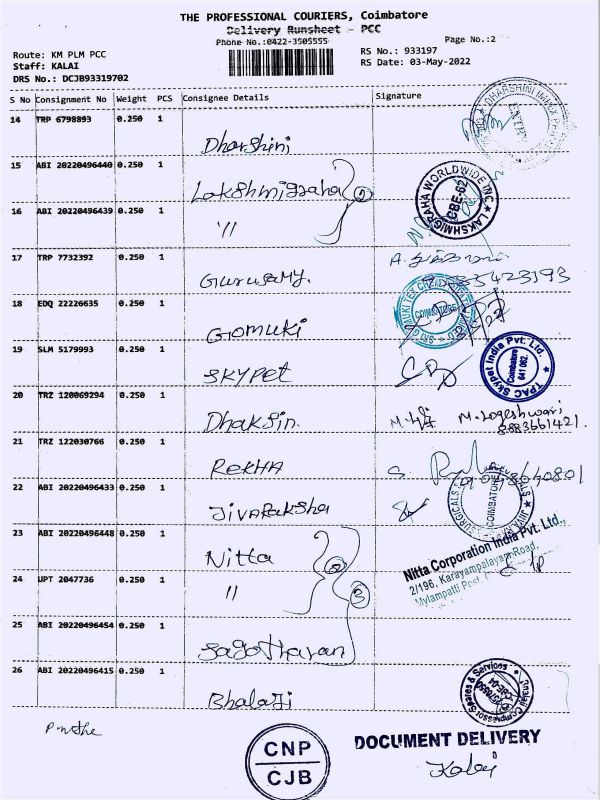 THE PROFESSIONAL COURIERS, Coimbatore
Delivery Runsheet - PCC
Phone No.:0422-3505555 Page No.:2
Route: KM PLM PCC RS No.: 933197
Staff: KALAI RS Date: 03-May-2022
DRS No.: DCJB93319702
S No Consignment No Weight PCS Consignee Details Signature
14 TRP 6798893 0.250 1
Dharshini
15 ABI 20220496440 0.250 1
Lakshmigraha 2
16 ABI 20220496439 0.250 1
LAKSHMIGRAHA WORLDWIDE INC
CBE-62
"
17 TRP 7732392 0.250 1
Gurusamy.
18 EDQ 22226635 0.250 1
COIMBATORE
Gomuki
19 SLM 5179993 0.250 1
TPAC Skypet India Pvt. Ltd.
Coimbatore
641 062.
SKYPET
20 TRZ 120069294 0.250 1
Dhaksin. M. Logeshwari
8883661421
21 TRZ 122030766 0.250 1
REKHA
22 ABI 20220496433 0.250 1
COIMBATORE
Jivaraksha
23 ABI 20220496448 0.250 1
Nitta 2
Nitta Corporation India Pvt. Ltd.,
2/196, Karayampalayam Road,
Mylampatti Post,
24 UPT 2047736 0.250 1
" 3
25 ABI 20220496454 0.250 1
Sagotharan
26 ABI 20220496415 0.250 1
Bhalaji
CNP
CJB
DOCUMENT DELIVERY
Kalai